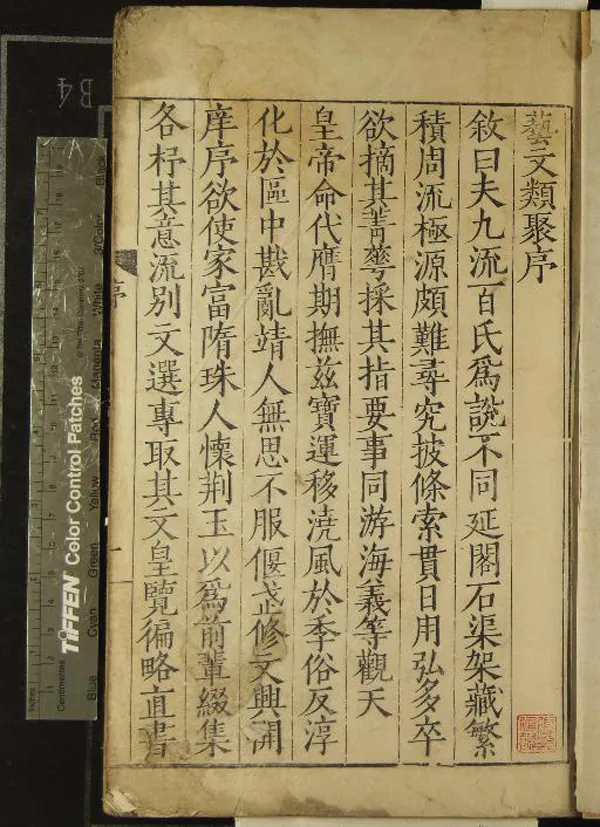 藝文類聚序
敘曰夫九流百氏爲說不同延閣石渠架藏繁
積周流極源頗難尋究披條索貫日用弘多卒
欲摘其菁華採其指要事同游海義等觀天
皇帝命代膺期撫茲寶運移澆風於季俗反淳
化於區中戡亂靖人無思不服偃武修文興開
庠序欲使家富隋珠人懷荆玉以爲前輩綴集
各杼其意流別文選專取其文皇覽徧略直書
序
一
B4
TIFFEN Color Control Patches
Inches
Centimetres
Blue
Cyan
Green
Yellow
Red
Magenta
White
3/Color
Black